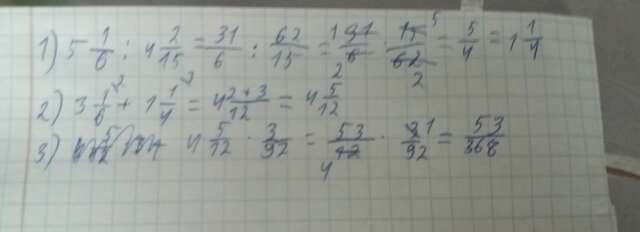 1) 5 1/6 : 4 2/15 = 31/6 : 62/15 = 31/6 · 15/62 = 5/4 = 1 1/4
2) 3 1/6 + 1 1/4 = 4 2+3/12 = 4 5/12
3) 4 5/12 · 3/92 = 53/12 · 3/92 = 53/368